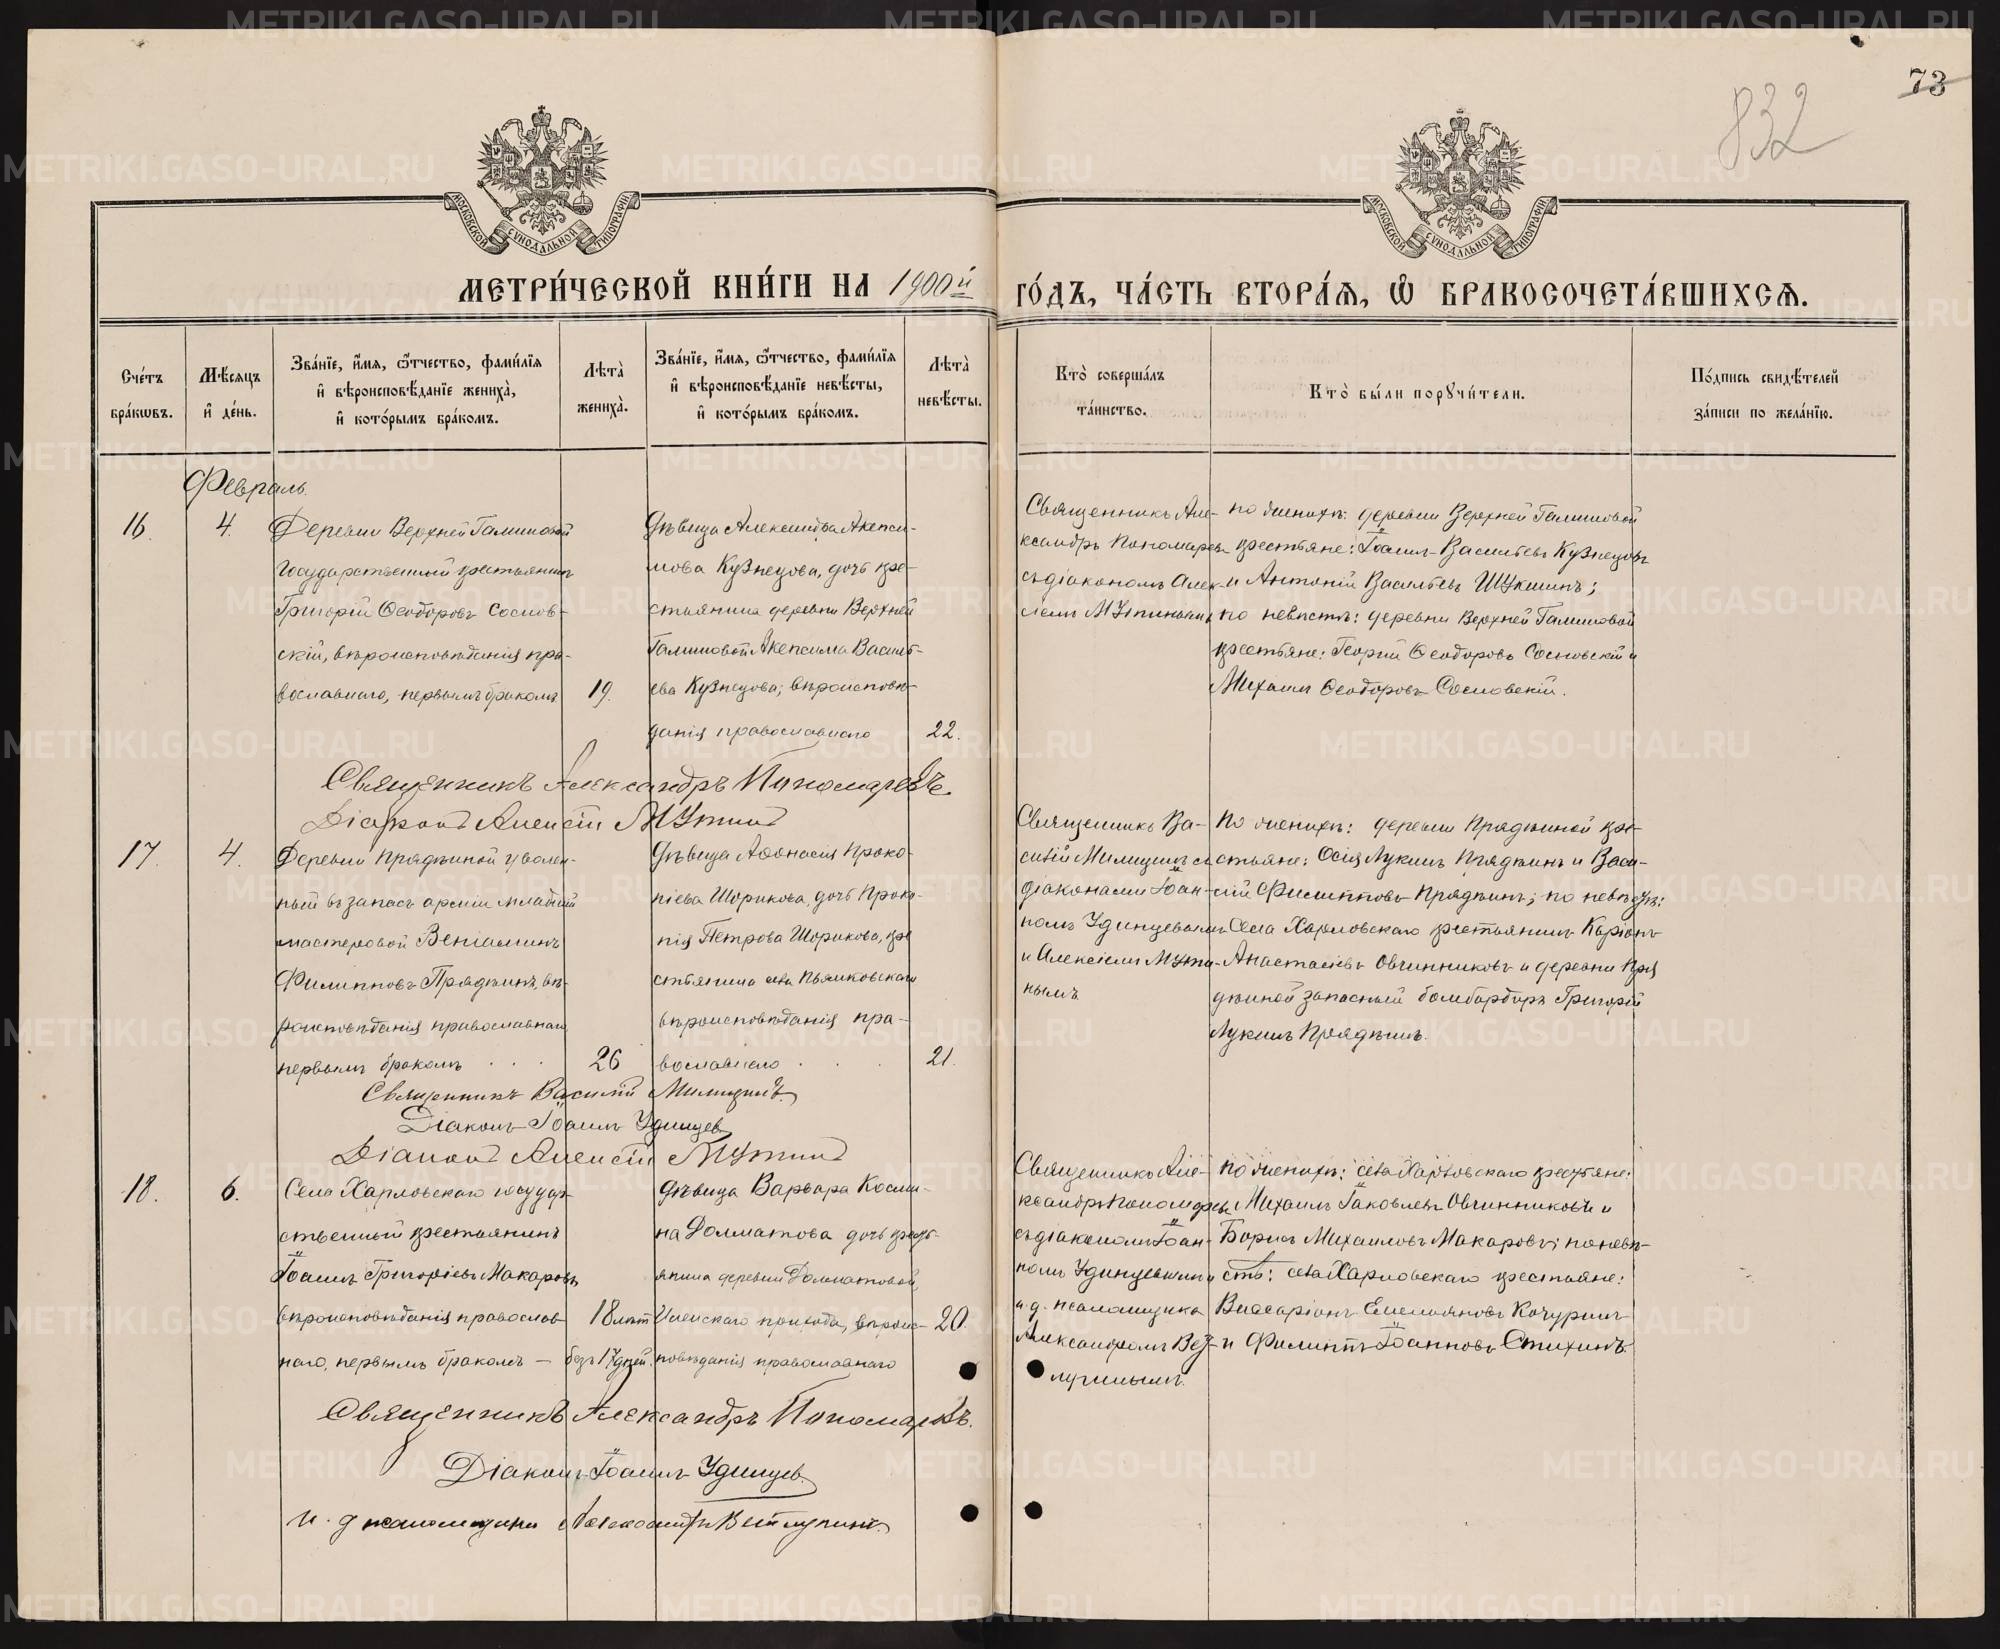 73
832
МОСКОВСКОЙ СѴНОДАЛЬНОЙ ТИПОГРАФІИ
МОСКОВСКОЙ СѴНОДАЛЬНОЙ ТИПОГРАФІИ
МЕТРИ́ЧЕСКОЙ КНИ́ГИ НА 1900й
ГО́ДЪ, ЧА́СТЬ ВТОРА́Ѧ, Ѽ БРАКОСОЧЕТА́ВШИХСѦ.
Сче́тъ
бра́кѡвъ.
Мѣ́сяцъ
и́ де́нь.
Зва́нїе, и́мѧ, ѻ́тчество, фами́лїѧ
и́ вѣроисповѣ́данїе жениха̀,
и́ кото́рымъ бра́комъ.
Лѣта̀
жениха̀.
Зва́нїе, и́мѧ, ѻ́тчество, фами́лїѧ
и́ вѣроисповѣ́данїе невѣ́сты,
и́ кото́рымъ бра́комъ.
Лѣта̀
невѣ́сты.
Кто̀ соверша́лъ
та́инство.
Кто̀ бы́ли порꙋчи́тели.
По́дпись свидѣ́телей
за́писи по жела́нїю.
Февраль.
16.
4.
Деревни Верхней Галишовой
государственный крестьянинъ
Григорій Ѳеодоровъ Соснов-
скій, вѣроисповѣданія пра-
вославнаго, первымъ бракомъ
19.
Дѣвица Александра Акепси-
мова Кузнецова, дочь кре-
стьянина деревни Верхней
Галишовой Акепсима Василь-
ева Кузнецова; вѣроисповѣ-
данія православнаго
22.
Священникъ Але-
ксандръ Пономаревъ
съ діакономъ Алек-
сіемъ Мутинымъ
по женихѣ: деревни Верхней Галишовой
крестьяне: Іоаннъ Васильевъ Кузнецовъ
и Антоній Васильевъ Шукшинъ;
по невѣстѣ: деревни Верхней Галишовой
крестьяне: Георгій Ѳеодоровъ Сосновскій и
Михаилъ Ѳеодоровъ Сосновскій.
Священникъ Александръ Пономаревъ
Діаконъ Алексій Мутинъ
17.
4.
Деревни Прядѣиной уволен-
ный въ запасъ арміи младшій
мастеровой Веніаминъ
Филипповъ Прядѣинъ, вѣ-
роисповѣданія православнаго
первымъ бракомъ . . .
26
Дѣвица Аѳанасія Проко-
піева Шорикова, дочь Проко-
пія Петрова Шорикова, кре
стьянина села Пьянковскаго
вѣроисповѣданія пра-
вославнаго . . .
21.
Священникъ Ва-
силій Милицинъ съ
діаконами Іоан-
номъ Удинцевымъ
и Алексіемъ Мути-
нымъ
По женихѣ: деревни Прядѣиной кре-
стьяне: Осія Лукинъ Прядѣинъ и Васи-
лій Филипповъ Прядѣинъ; по невѣстѣ:
Села Харловскаго крестьянинъ Каріонъ
Анастасіевъ Овчинниковъ и деревни Пря
дѣиной запасный бомбардиръ Григорій
Лукинъ Прядѣинъ.
Священникъ Василій Милицинъ.
Діаконъ Іоаннъ Удинцев
Діаконъ Алексій Мутинъ
18.
6.
Села Харловскаго государ-
ственный крестьянинъ
Іоаннъ Григоріевъ Макаровъ,
вѣроисповѣданія православ
наго, первымъ бракомъ —
18 лѣт
безъ 17 дней.
Дѣвица Варвара Косми-
на Долматова дочь кресть-
янина деревни Долматовой,
Иленскаго прихода, вѣроис-
повѣданія православнаго
20.
Священникъ Але-
ксандръ Пономаревъ
съ діакономъ Іоан-
номъ Удинцевымъ и
и. д. псаломщика
Александромъ Вет-
лугинымъ.
По женихѣ: села Харловскаго крестьяне:
Михаилъ Іаковлевъ Овчинниковъ и
Борисъ Михаиловъ Макаровъ; по невѣ-
стѣ: села Харловскаго крестьяне:
Виссаріонъ Емельяновъ Кочуринъ
и Филиппъ Іоанновъ Стихинъ.
Священникъ Александръ Пономаревъ.
Діаконъ Іоаннъ Удинцев.
и. д псаломщика Александръ Ветлугинъ.
METRIKI.GASO-URAL.RU